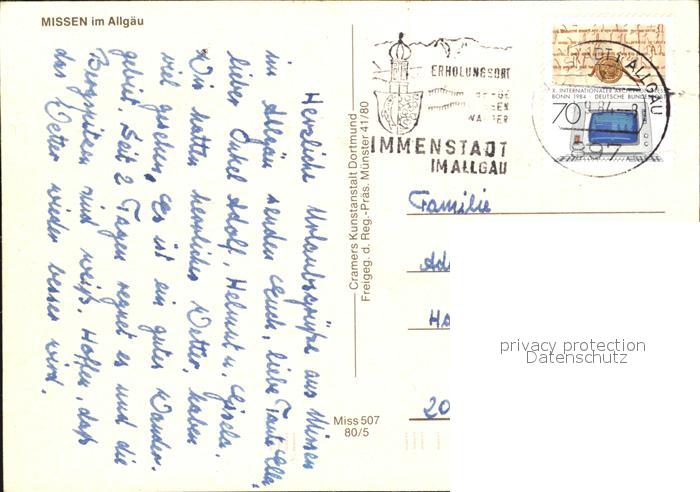 MISSEN im Allgäu
Herzliche Urlaubsgrüße aus Missen
im Allgäu senden Euch, liebe Tante Ella,
lieber Onkel Adolf, Helmut u. Gisela.
Wir hatten herrliches Wetter, haben
viel gesehen, es ist ein gutes Wander-
gebiet. Seit 2 Tagen regnet es und die
Bergspitzen sind weiß. Hoffen, daß
das Wetter wieder besser wird.
Cramers Kunstanstalt Dortmund
Freigeg. d. Reg.-Präs. Münster 41/80
Miss 507
80/5
ERHOLUNGSORT
IMMENSTADT
IM ALLGÄU
X. INTERNATIONALER
BONN 1984 DEUTSCHE BUNDESPOST
70
ALLGÄU
Familie
Ad
Ha
20
privacy protection
Datenschutz